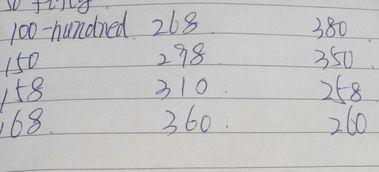 100-hundred 268 380
150 298 350
158 310 258
168. 360. 260